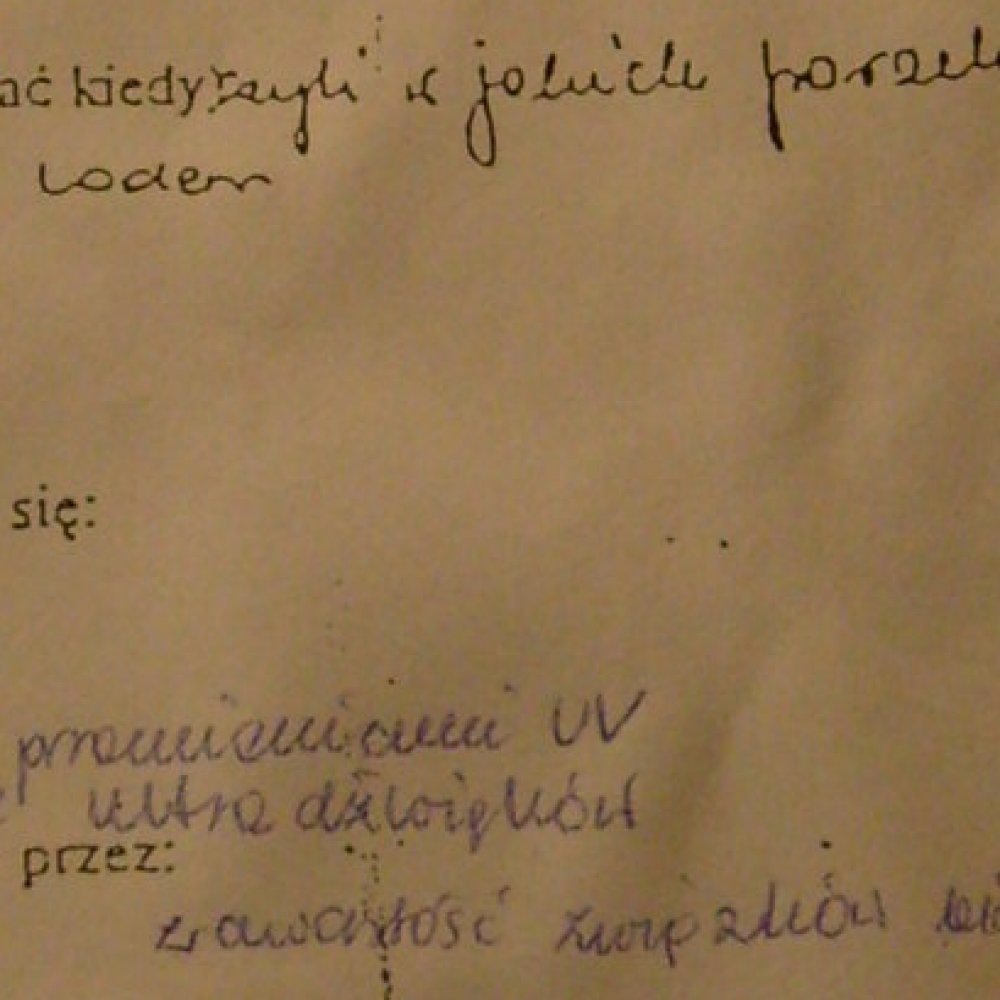 ać kiedy żyli w jelicie
się:
promieniami UV
ultra dźwięków
przez:
zawartość związków